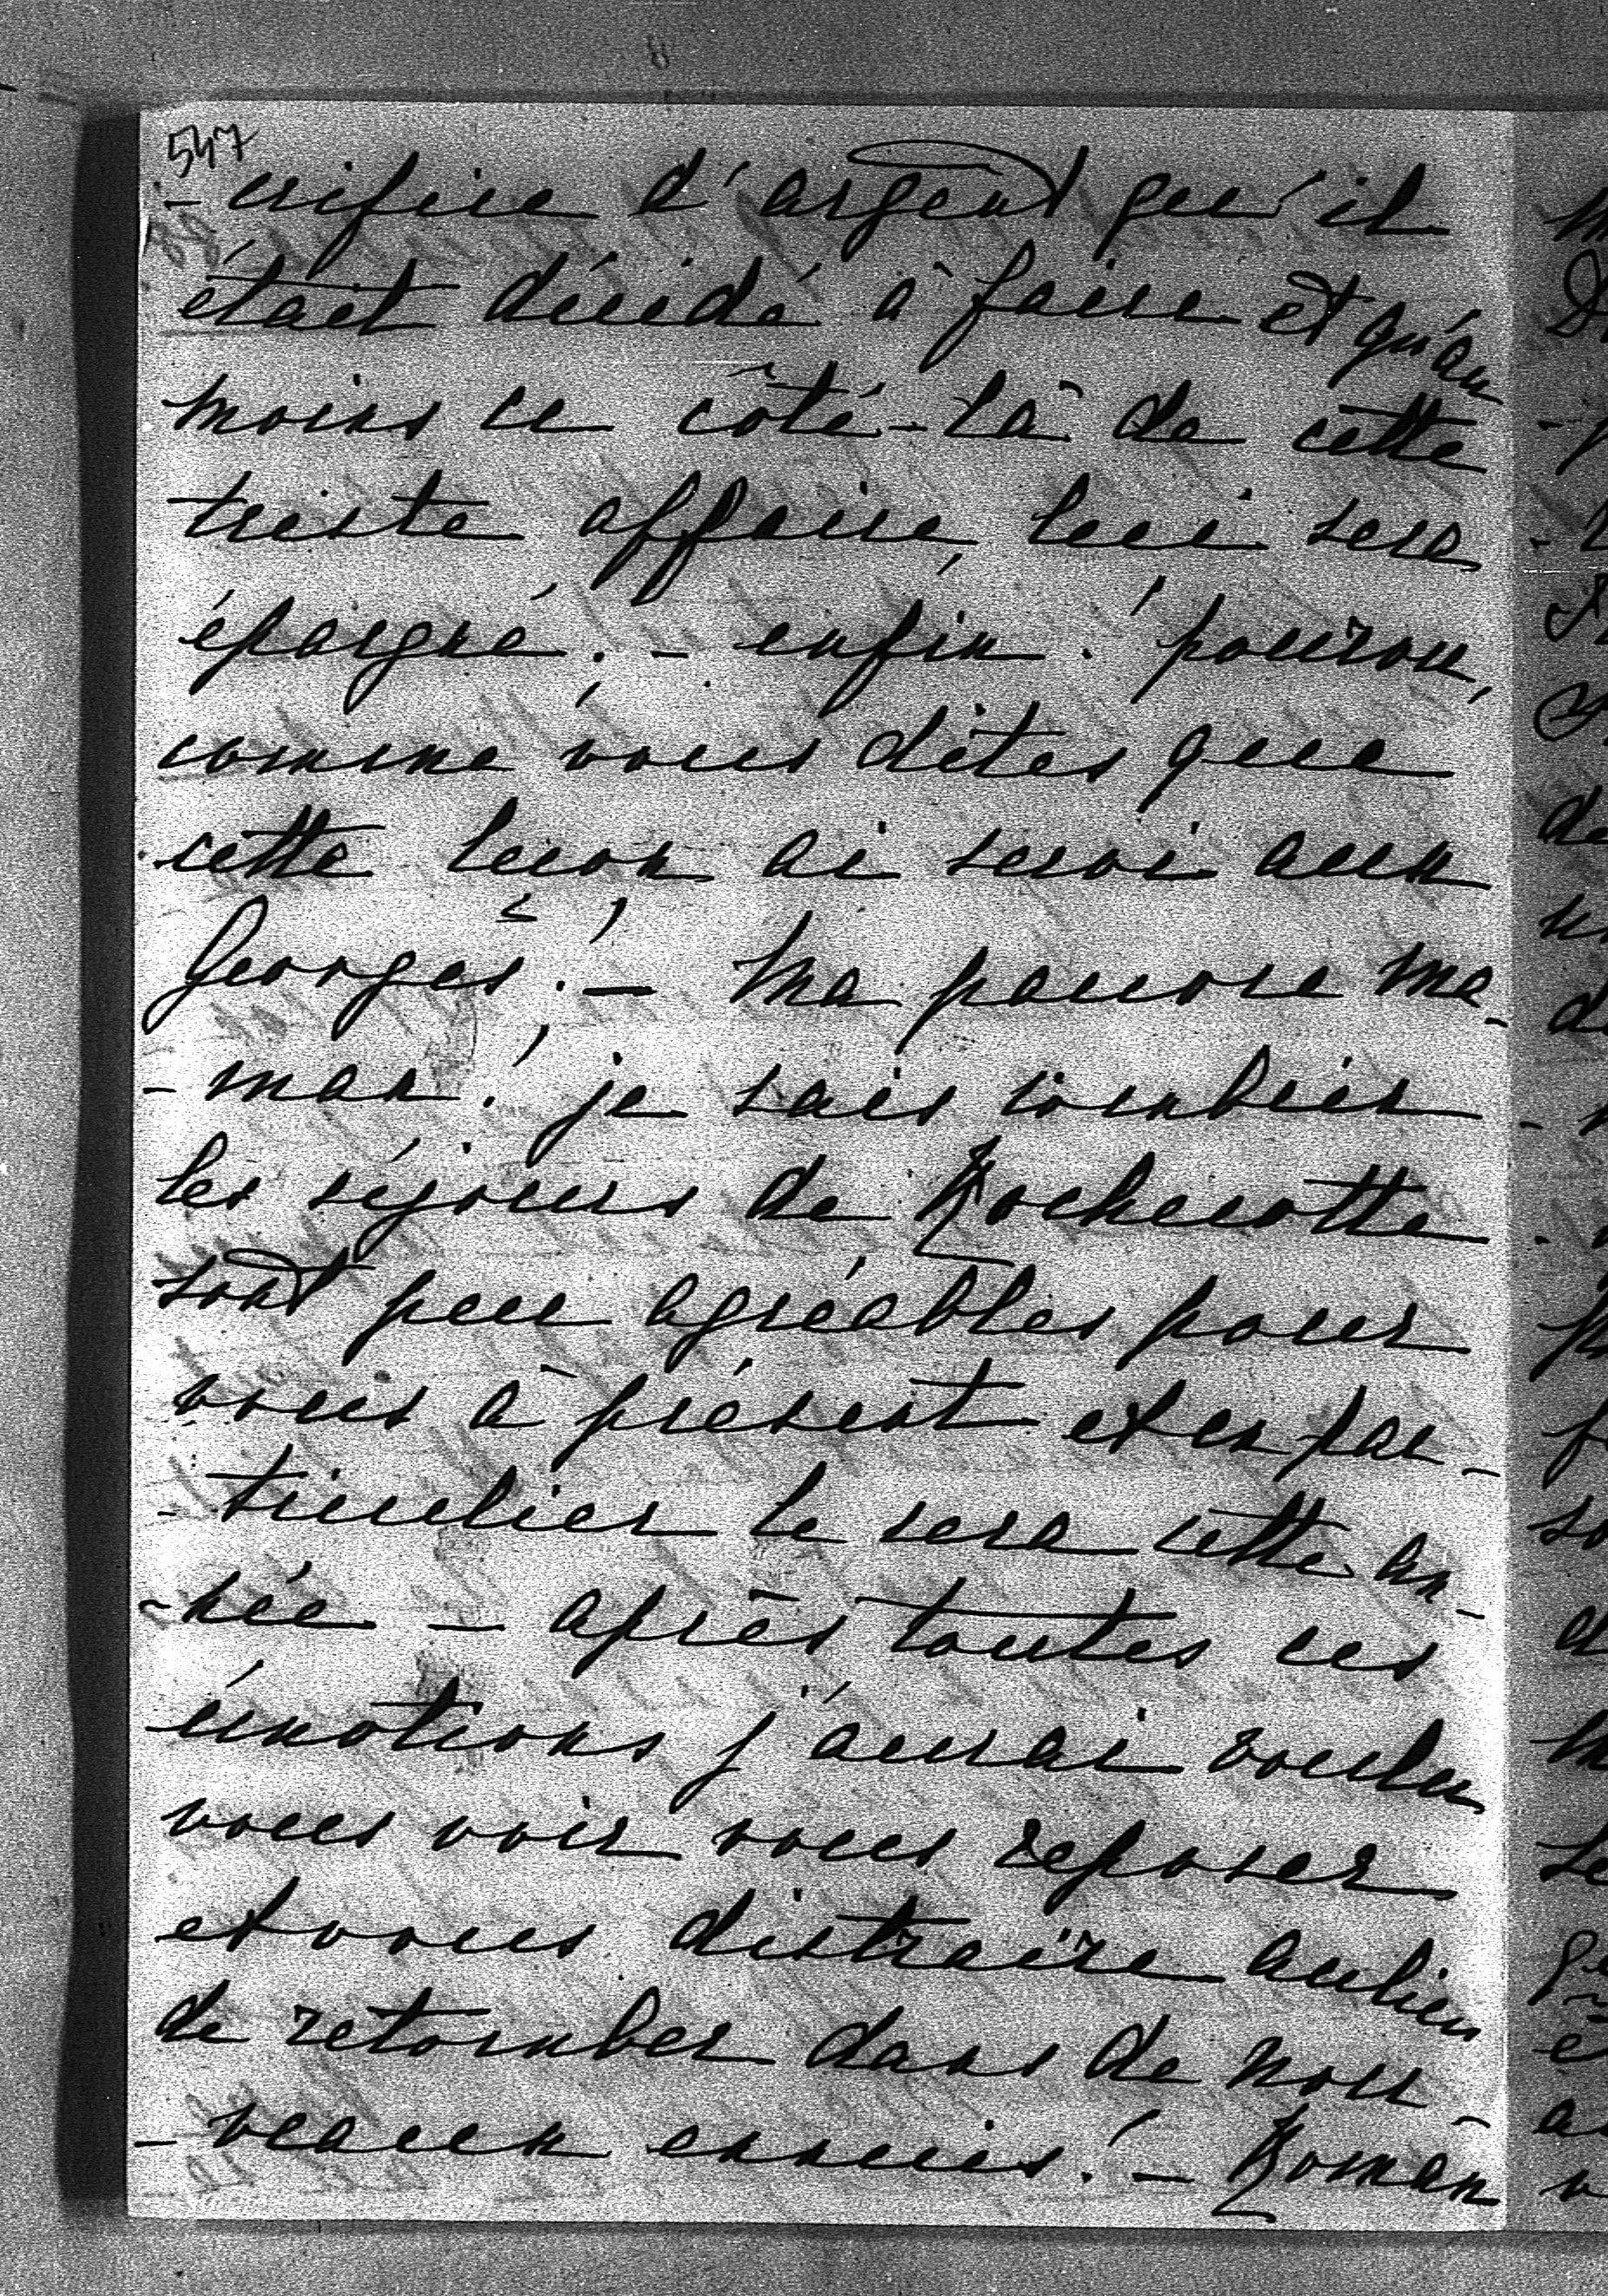 547
- crifice d'argent qu'il
était décidé à faire et qu'au
moins ce côté-là de cette
triste affaire, lui sera
épargné! - enfin! pourvu,
comme vous dites que
cette leçon ai servi aux
Georges! - Ma pauvre Ma-
- man! je sais combien
les séjours de Rochecotte
sont peu agréables pour
vous à présent et en par-
- ticulier le sera cette an-
- née - après toutes ces
émotions j'aurai voulu
vous voir vous reposer
et vous distraire aulieu
de retomber dans de nou-
- veaux ennuis! - Roman